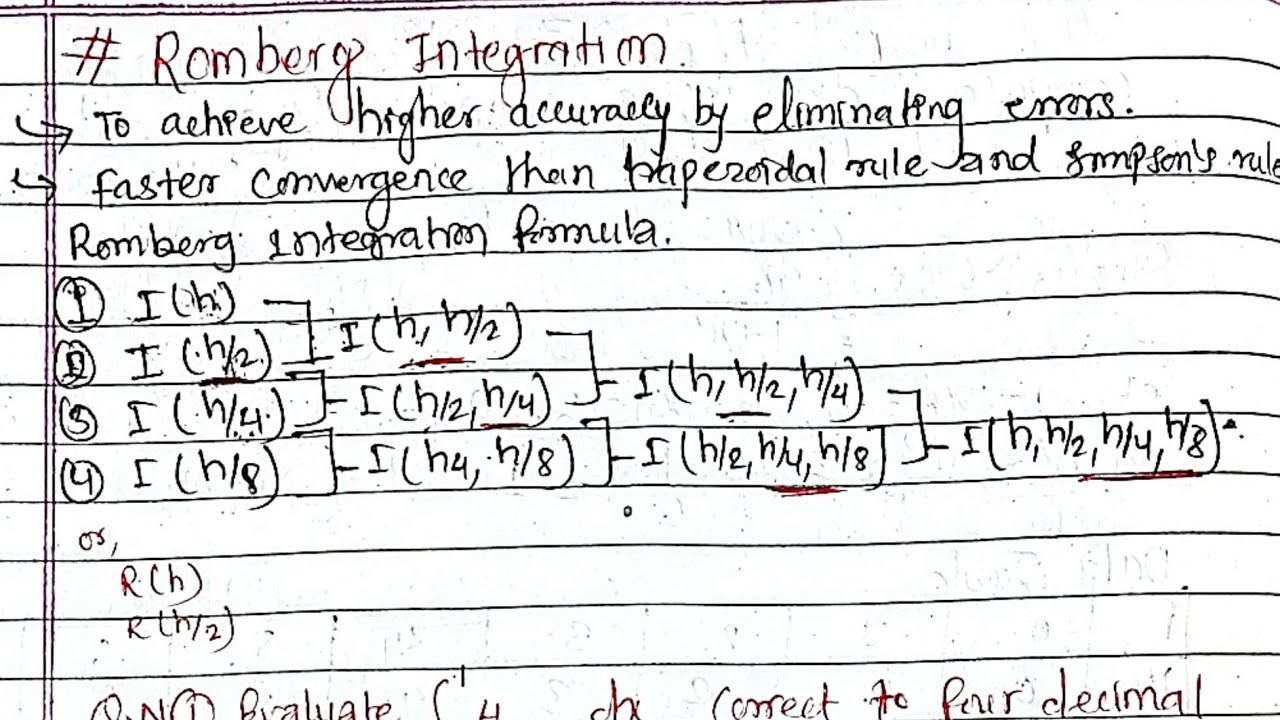 # Romberg Integration.
→ To achieve higher accuracy by eliminating errors.
→ faster convergence than trapezoidal rule and Simpson's rule
Romberg Integration formula.
① I(h) I(h, h/2)
② I(h/2) I(h, h/2, h/4)
③ I(h/4) I(h/2, h/4) I(h, h/2, h/4, h/8)
④ I(h/8) I(h4, h/8) I(h/2, h/4, h/8]
or,
R(h)
R(h/2)
Q.N① Evaluate ∫ 4 dx correct to four decimal